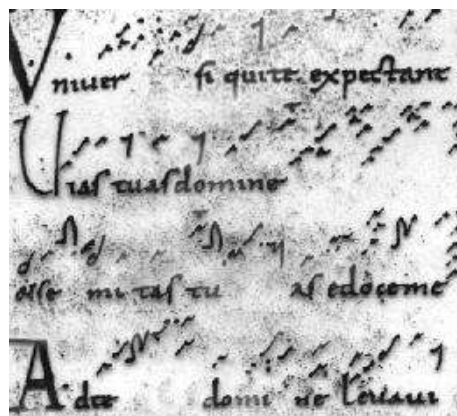 Vniuer si qui te expectant
Uias tuas domine
mi tas tu as edoceme
Adte domi ne leuaui